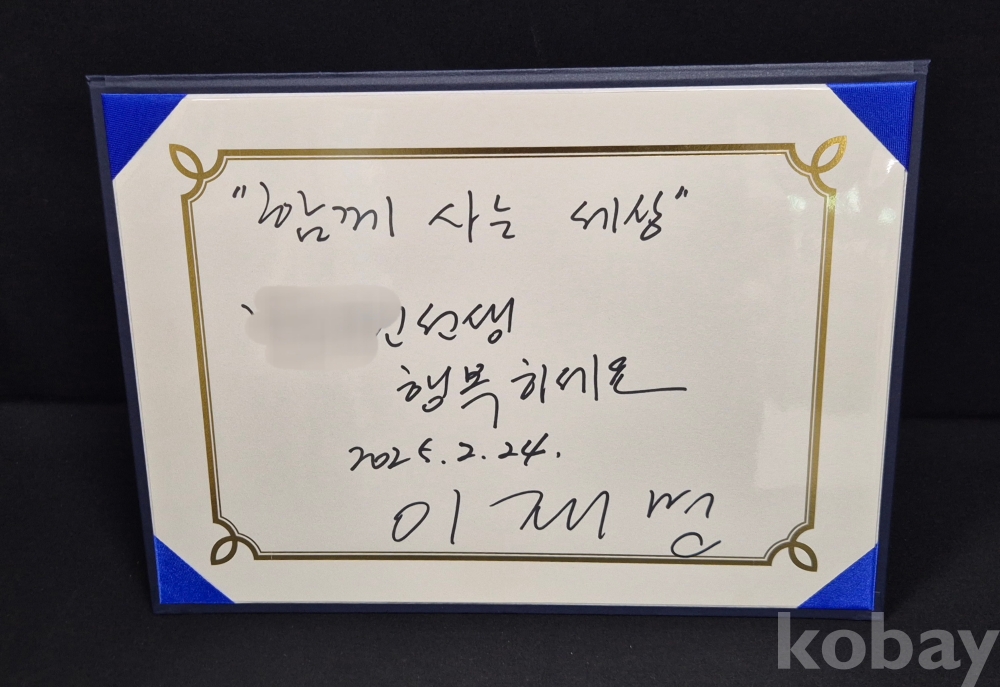 "함께 사는 세상"
선생
행복하세요
2025.2.24.
이재명
kobay